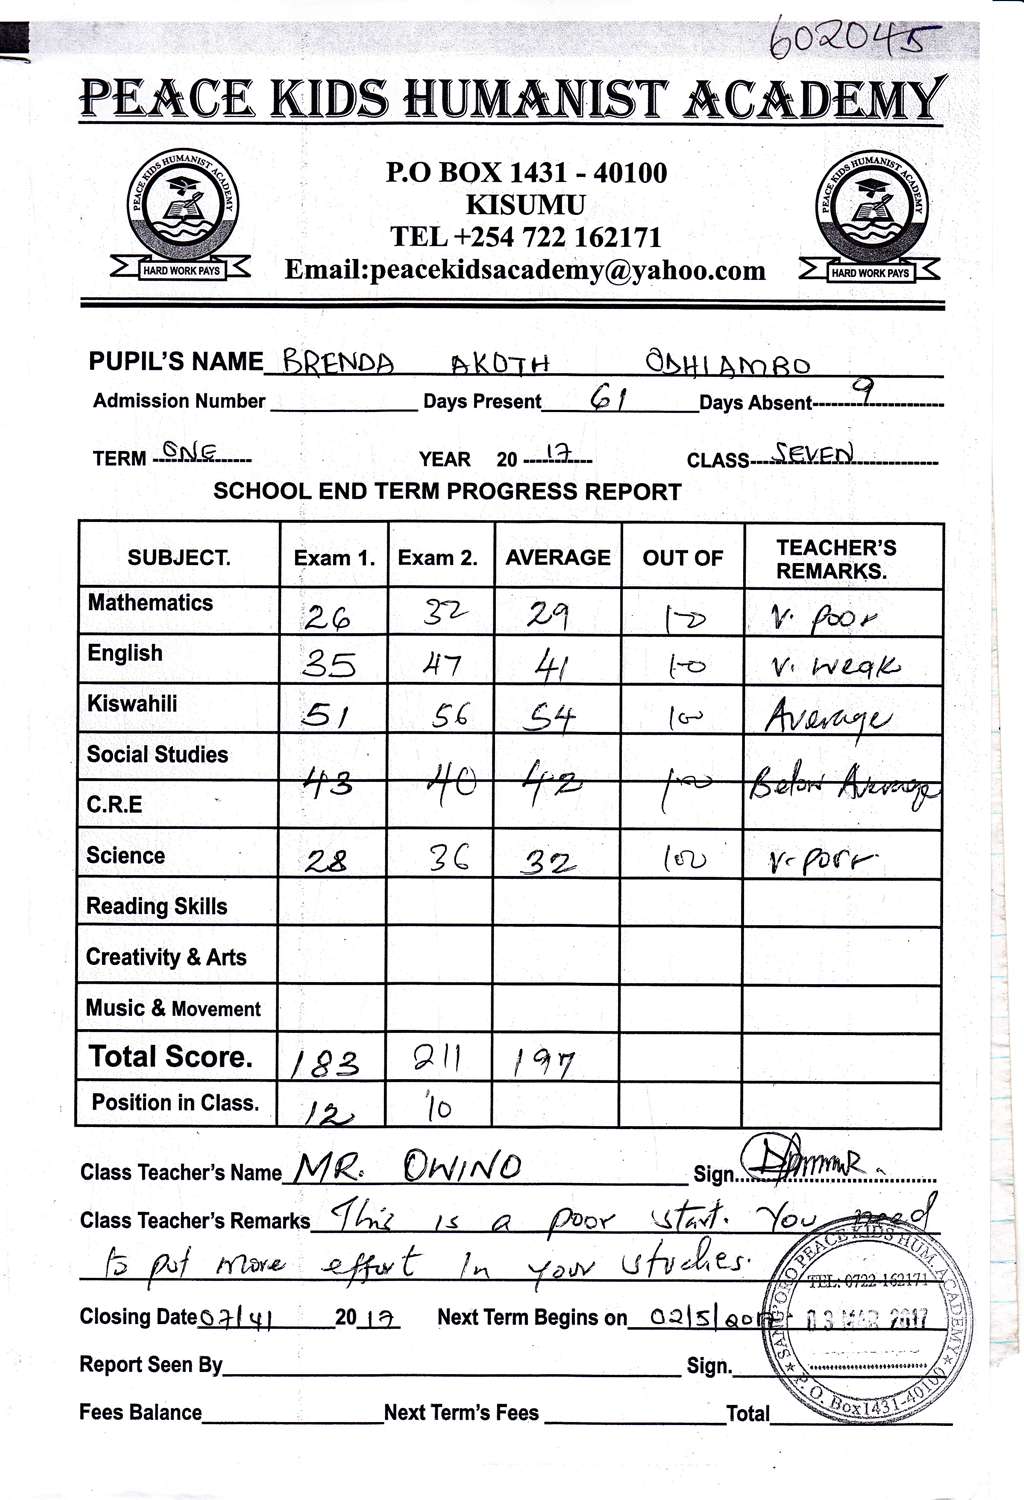 602045
PEACE KIDS HUMANIST ACADEMY
PEACE KIDS HUMANIST ACADEMY
HARD WORK PAYS
P.O BOX 1431 - 40100
KISUMU
TEL +254 722 162171
Email:peacekidsacademy@yahoo.com
PEACE KIDS HUMANIST ACADEMY
HARD WORK PAYS
PUPIL'S NAME BRENDA AKOTH ODHIAMBO
Admission Number Days Present 61 Days Absent 9
TERM ONE YEAR 20 17 CLASS SEVEN
SCHOOL END TERM PROGRESS REPORT
SUBJECT. Exam 1. Exam 2. AVERAGE OUT OF TEACHER'S REMARKS.
Mathematics 26 32 29 100 V. poor
English 35 47 41 100 V. weak
Kiswahili 51 56 54 100 Average
Social Studies
43 40 42 100 Below Average
C.R.E
Science 28 36 32 100 V. poor
Reading Skills
Creativity & Arts
Music & Movement
Total Score. 183 211 197
Position in Class. 12 10
Class Teacher's Name MR. OWINO Sign.
Class Teacher's Remarks This is a poor start. You need
to put more effort in your studies.
Closing Date 07/4/ 2017 Next Term Begins on 02/5/2017
Report Seen By Sign.
Fees Balance Next Term's Fees Total
SANG'ORO PEACE KIDS HUM. ACADEMY
TEL: 0722-162171
03 MAR 2017
P. O. Box 1431-40100